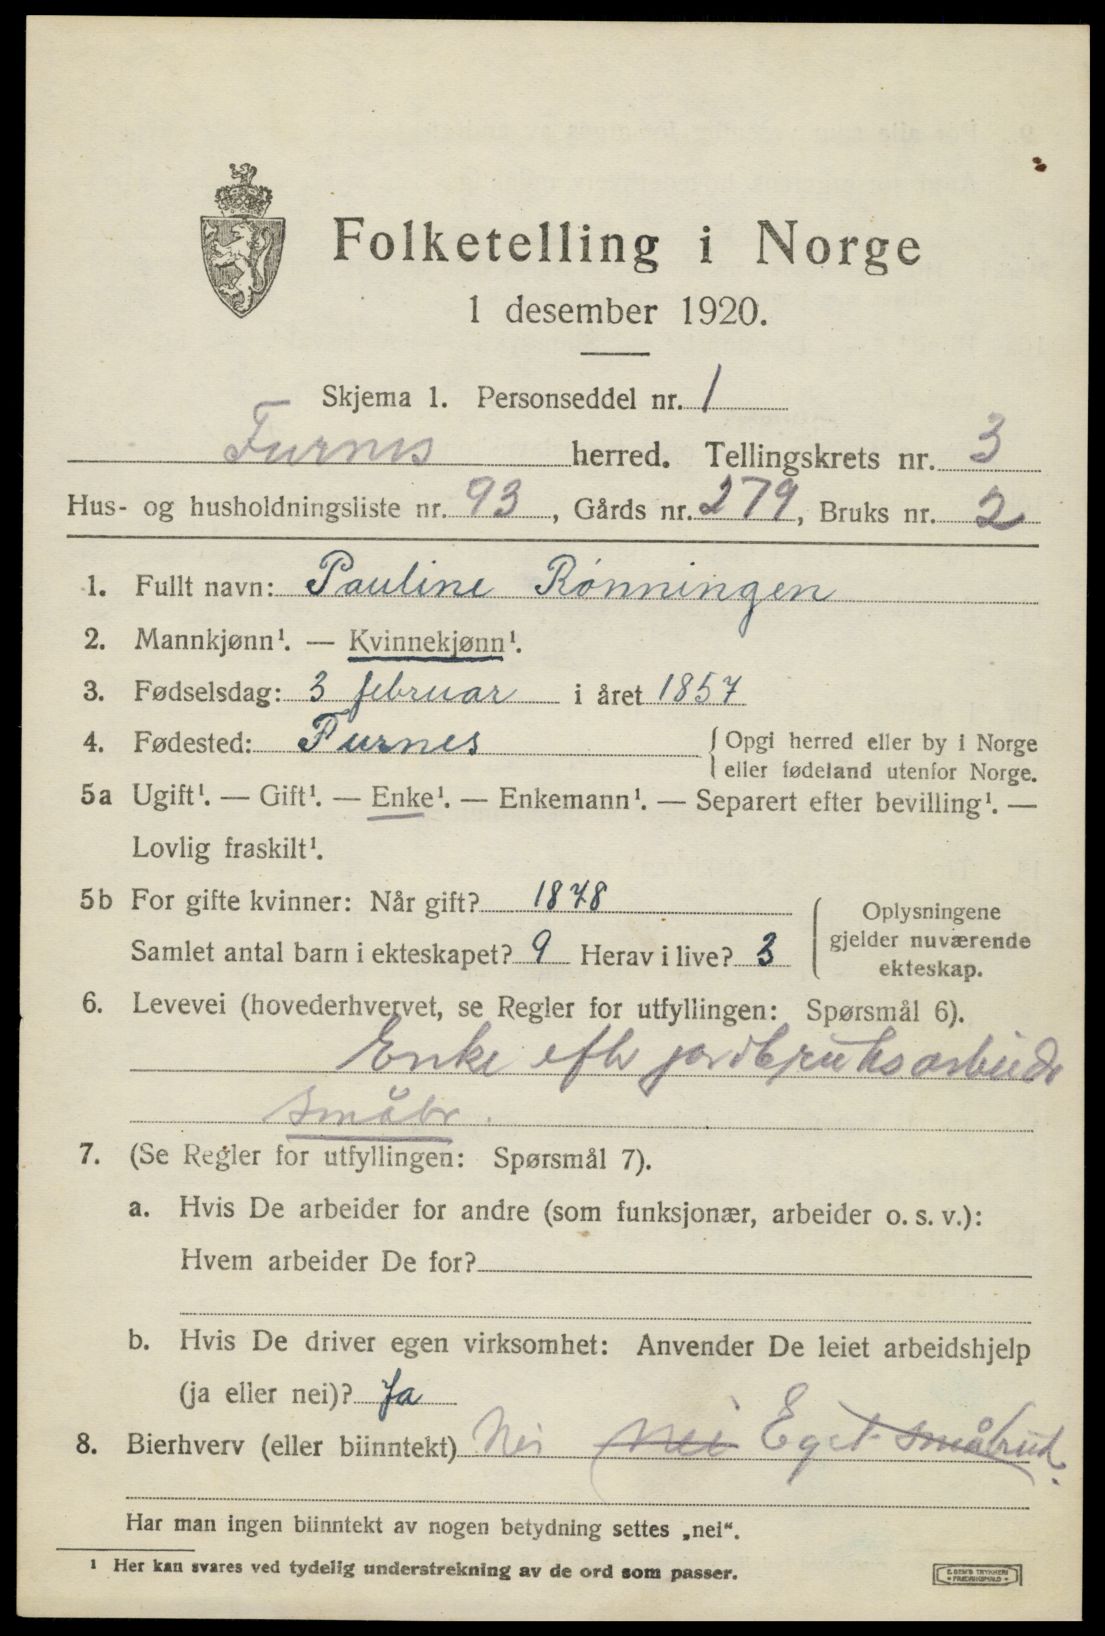 Folketelling i Norge
1 desember 1920.
Skjema 1. Personseddel nr. 1
Furnes herred. Tellingskrets nr. 3
Hus- og husholdningsliste nr. 93, Gårds nr. 279, Bruks nr. 2
1. Fullt navn: Pauline Rønningen
2. Mannkjønn¹. — Kvinnekjønn¹.
3. Fødselsdag: 3 februar i året 1857
4. Fødested: Furnes {Opgi herred eller by i Norge
eller fødeland utenfor Norge.
5a Ugift¹. — Gift¹. — Enke¹. — Enkemann¹. — Separert efter bevilling¹. —
Lovlig fraskilt¹.
5b For gifte kvinner: Når gift? 1878
Samlet antal barn i ekteskapet? 9 Herav i live? 3
{Oplysningene
gjelder nuværende
ekteskap.
6. Levevei (hovederhvervet, se Regler for utfyllingen: Spørsmål 6).
Enke eftr jordbruksarbeider
småbr.
7. (Se Regler for utfyllingen: Spørsmål 7).
a. Hvis De arbeider for andre (som funksjonær, arbeider o. s. v.):
Hvem arbeider De for?
b. Hvis De driver egen virksomhet: Anvender De leiet arbeidshjelp
(ja eller nei)? Ja
8. Bierhverv (eller biinntekt) Nei nei Eget småbruk.
Har man ingen biinntekt av nogen betydning settes „nei“.
¹ Her kan svares ved tydelig understrekning av de ord som passer.